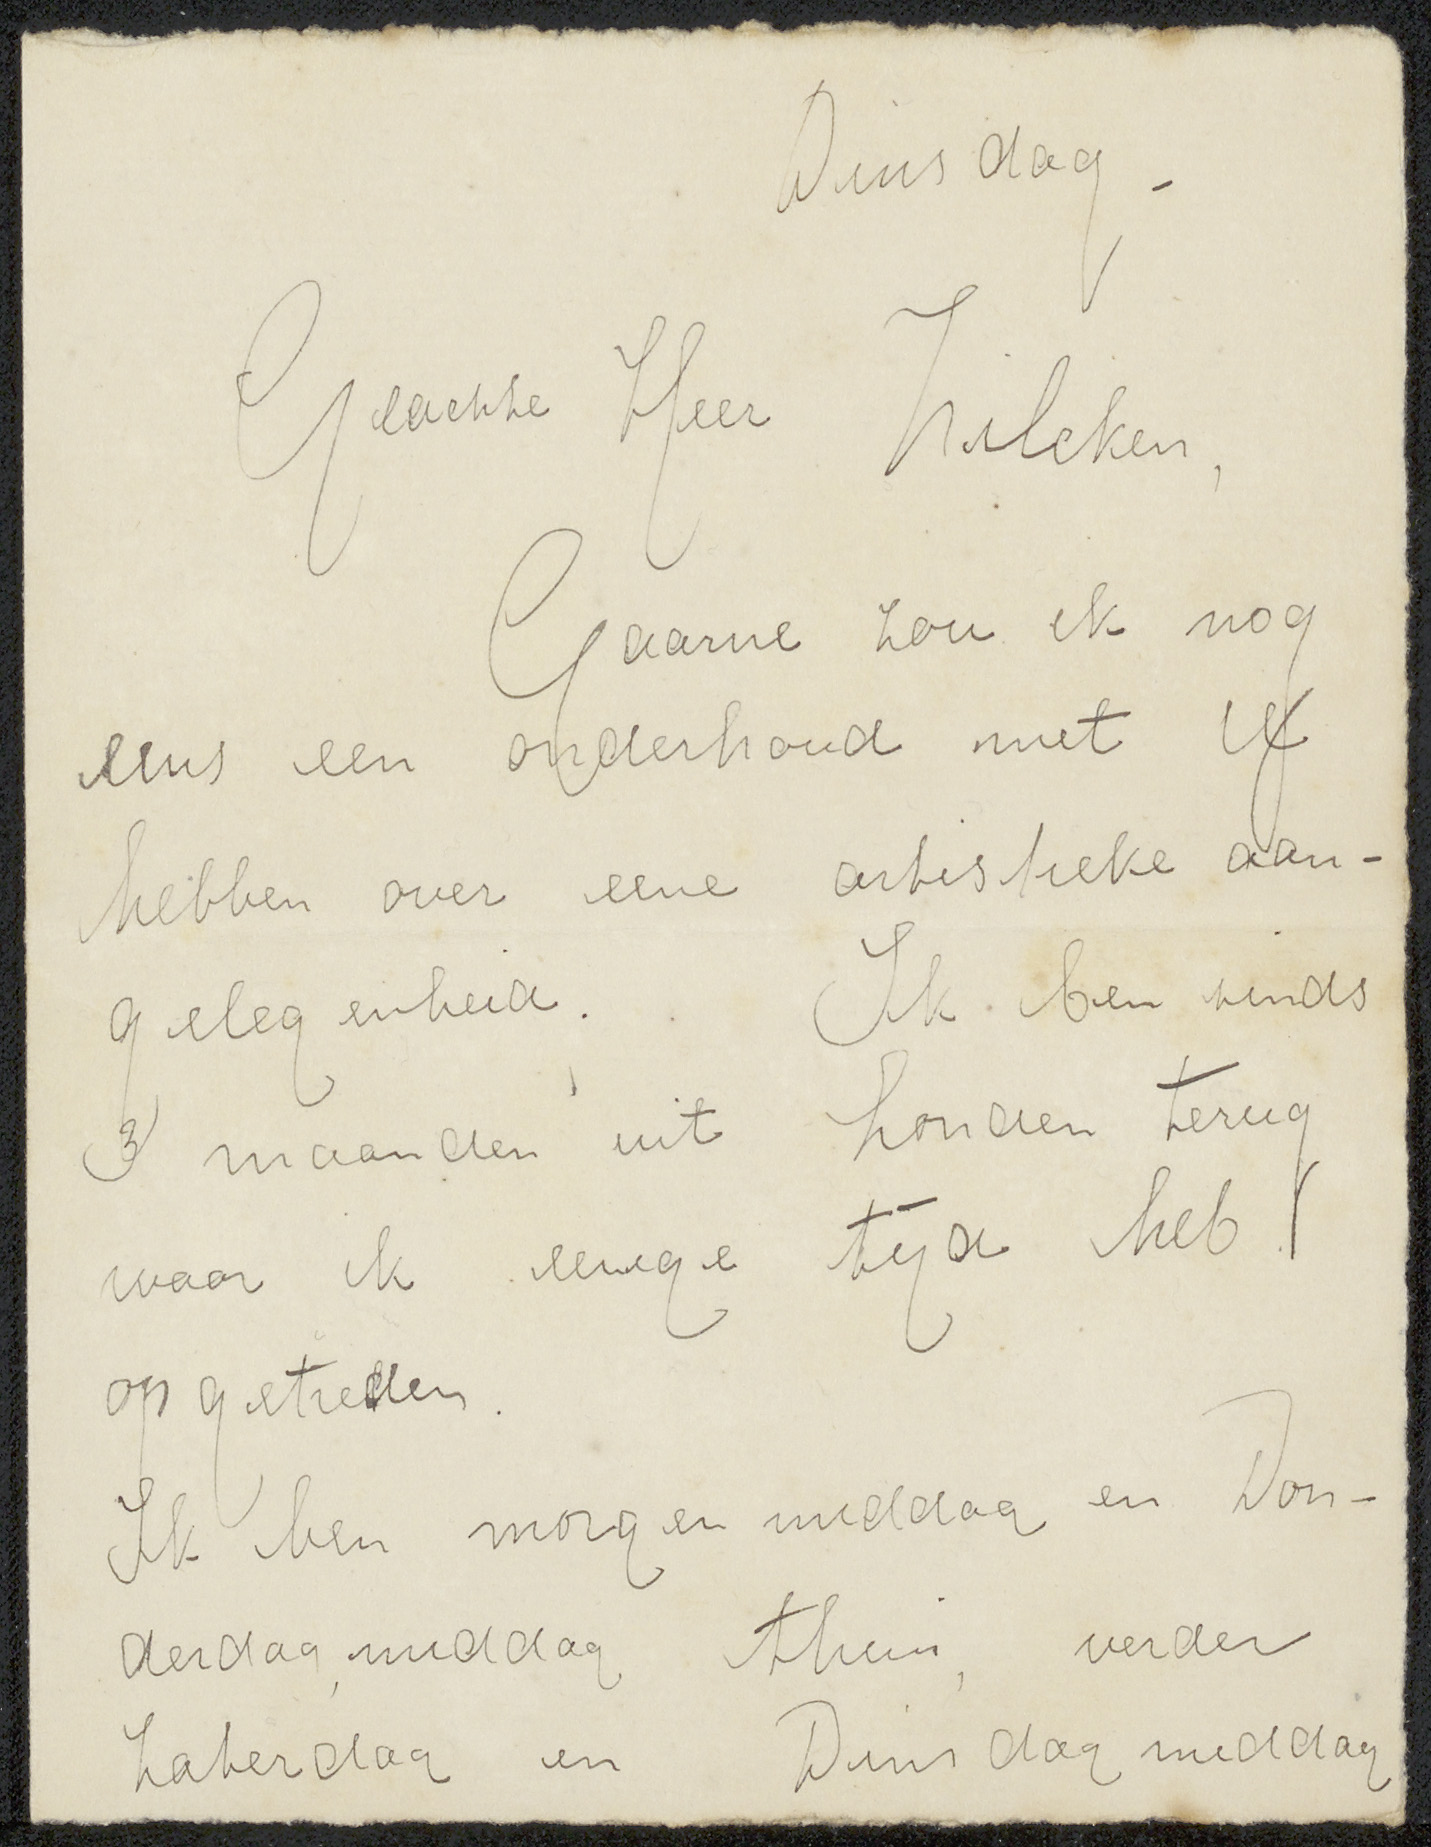 Dinsdag -
Geachte Heer Zilcken,
Gaarne zou ik nog
eens een onderhoud met U
hebben over eene artistieke aan-
gelegenheid. Ik ben sinds
3 maanden uit Londen terug
waar ik eenige tijd heb
opgetreden.
Ik ben morgen middag en Don-
derdag middag thuis, verder
Zaterdag en Dinsdag middag